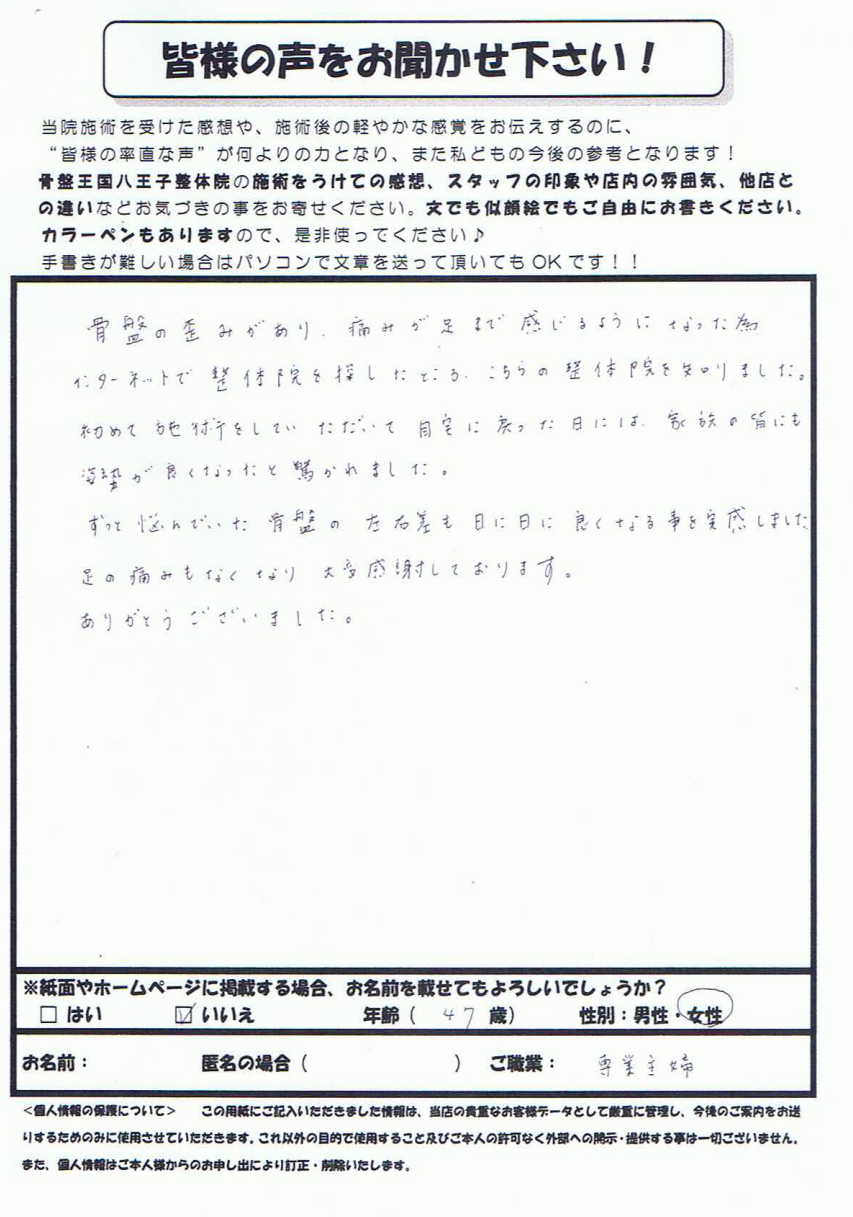 皆様の声をお聞かせ下さい！
当院施術を受けた感想や、施術後の軽やかな感覚をお伝えするのに、
“皆様の率直な声”が何よりの力となり、また私どもの今後の参考となります！
骨盤王国八王子整体院の施術をうけての感想、スタッフの印象や店内の雰囲気、他店と
の違いなどお気づきの事をお寄せください。文でも似顔絵でもご自由にお書きください。
カラーペンもありますので、是非使ってください♪
手書きが難しい場合はパソコンで文章を送って頂いてもOKです！！
骨盤の歪みがあり、痛みが足まで感じるようになった為
インターネットで整体院を探したところ、こちらの整体院を知りました。
初めて施術をしていただいて自宅に戻った日には、家族の皆にも
姿勢が良くなったと驚かれました。
ずっと悩んでいた骨盤の左右差も日に日に良くなる事を実感しました
足の痛みもなくなり大変感謝しております。
ありがとうございました。
※紙面やホームページに掲載する場合、お名前を載せてもよろしいでしょうか？
□ はい ☑ いいえ 年齢（ 47 歳） 性別：男性・女性
お名前： 匿名の場合（ ） ご職業： 専業主婦
＜個人情報の保護について＞ この用紙にご記入いただきました情報は、当店の貴重なお客様データとして厳重に管理し、今後のご案内をお送
りするためのみに使用させていただきます。これ以外の目的で使用すること及びご本人の許可なく外部への開示・提供する事は一切ございません。
また、個人情報はご本人様からのお申し出により訂正・削除いたします。